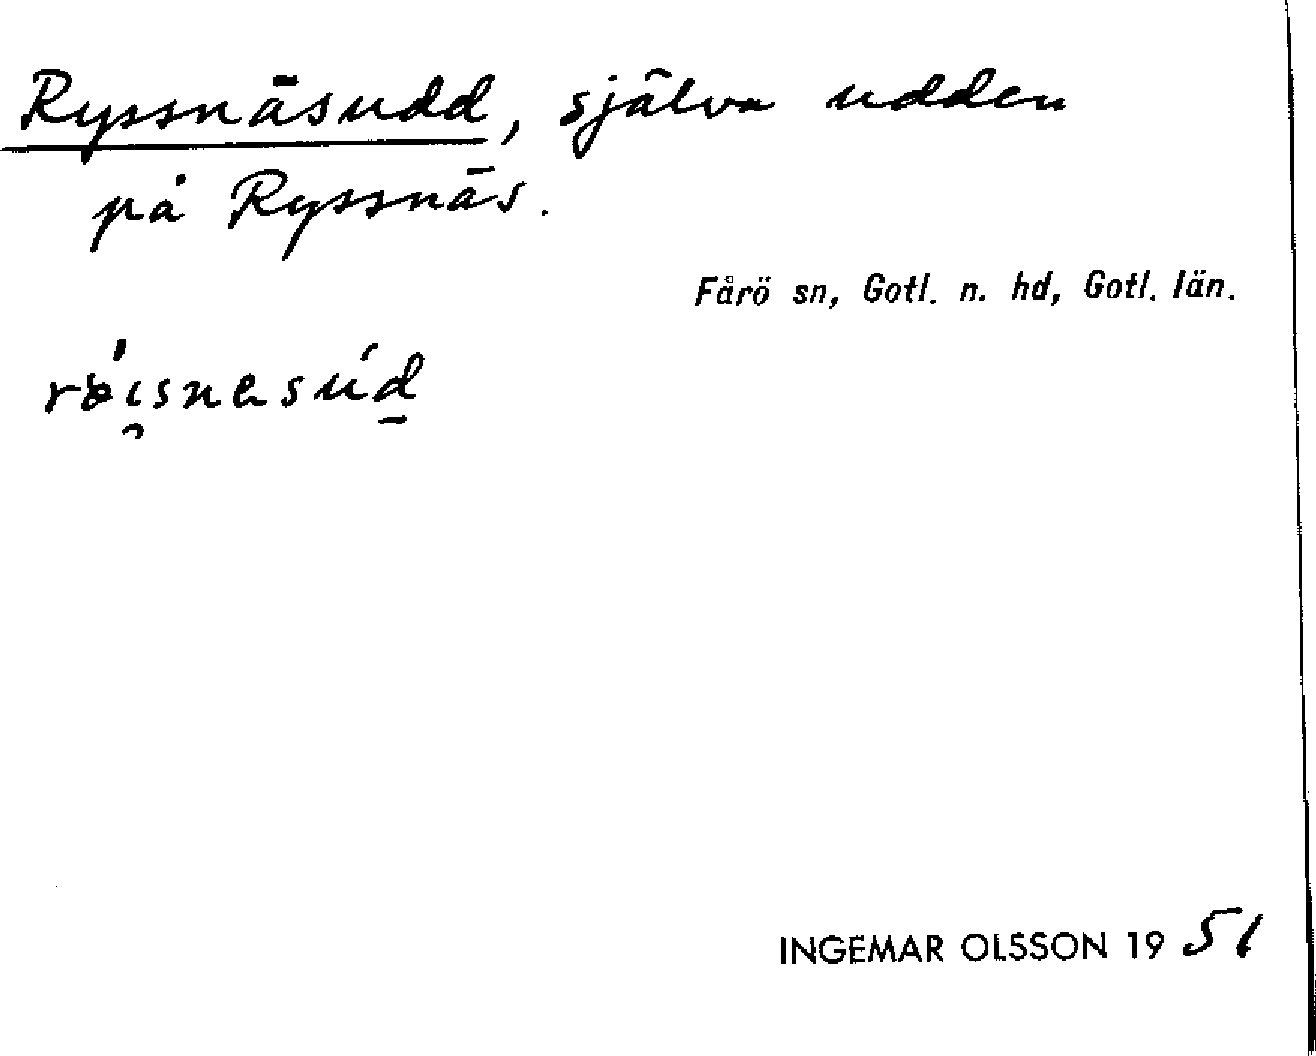 Ryssnäsudd, själva udden
på Ryssnäs.
Fårö sn, Gotl. n. hd, Gotl. län.
INGEMAR OLSSON 1951